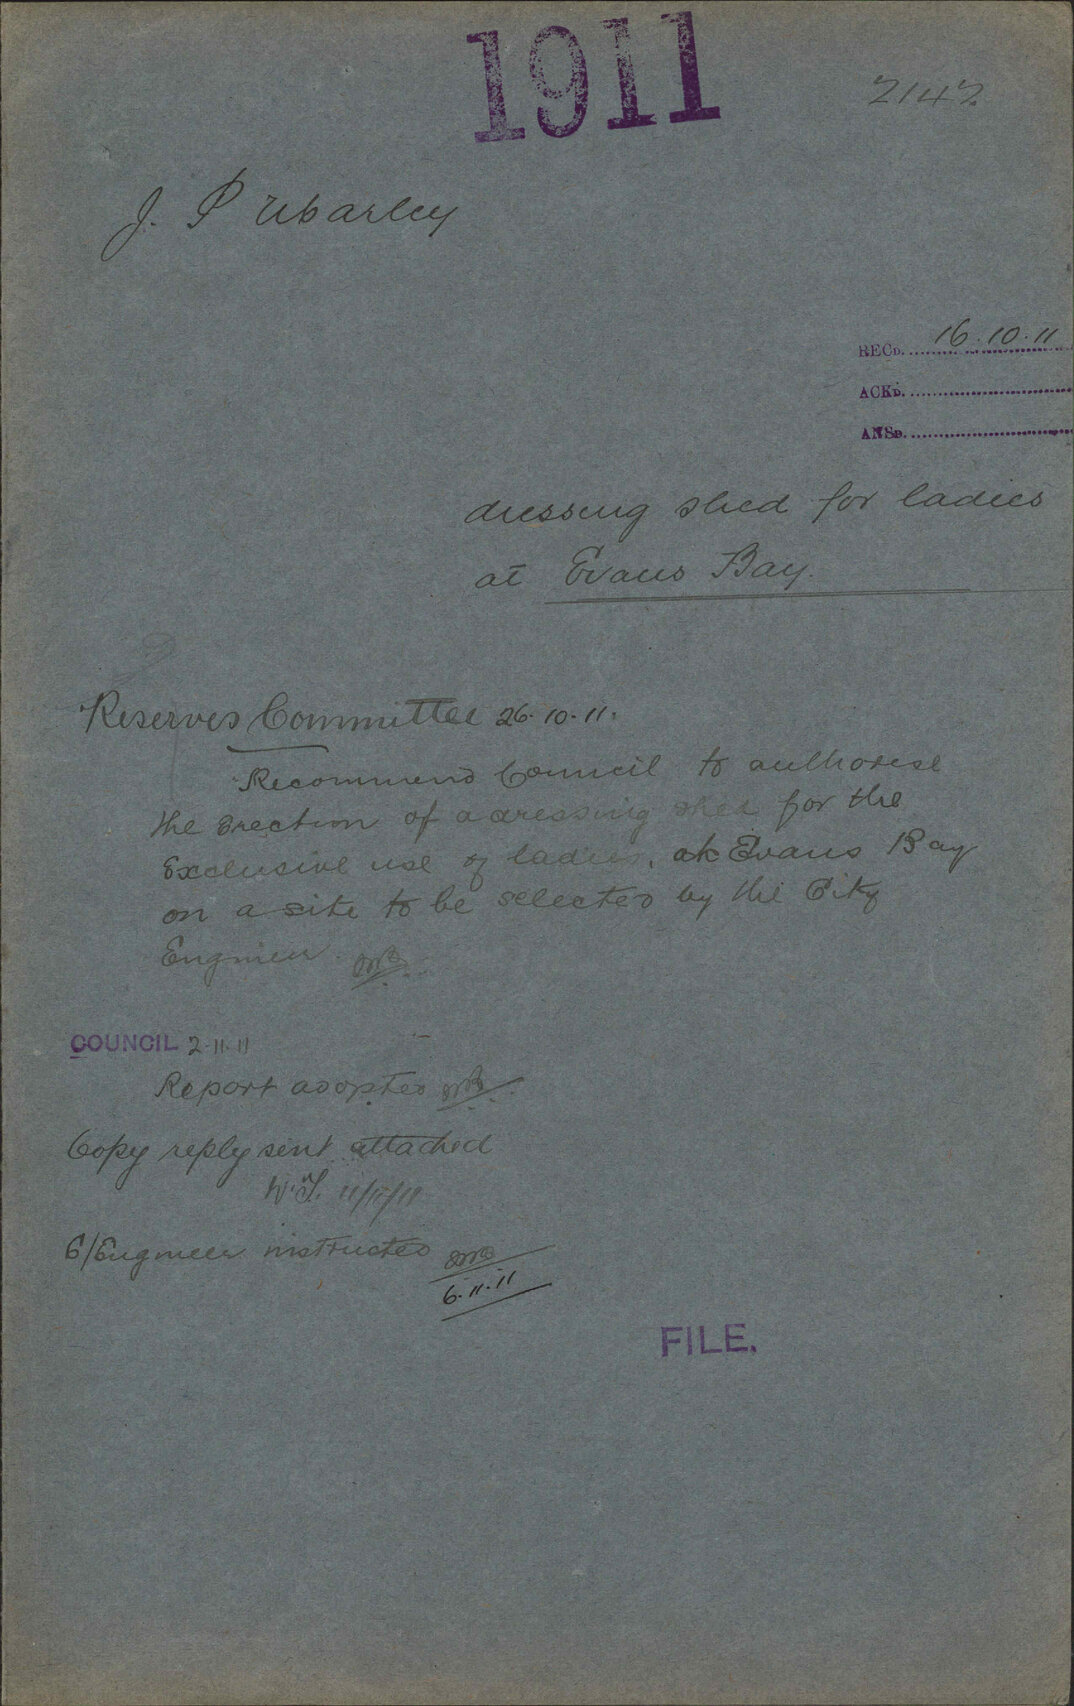 1911
2142
J. P
RECD. 16.10.11
ACKD.
ANSD.
dressing shed for ladies
at Evans Bay.
Reserves Committee 26.10.11.
Recommend Council to authorise
the erection of a dressing shed for the
exclusive use of ladies, at Evans Bay
on a site to be selected by the City
Engineer.
COUNCIL 2.11.11
Report adopted
Copy reply sent attached
11/11/11
C/Engineer instructed
6.11.11
FILE.